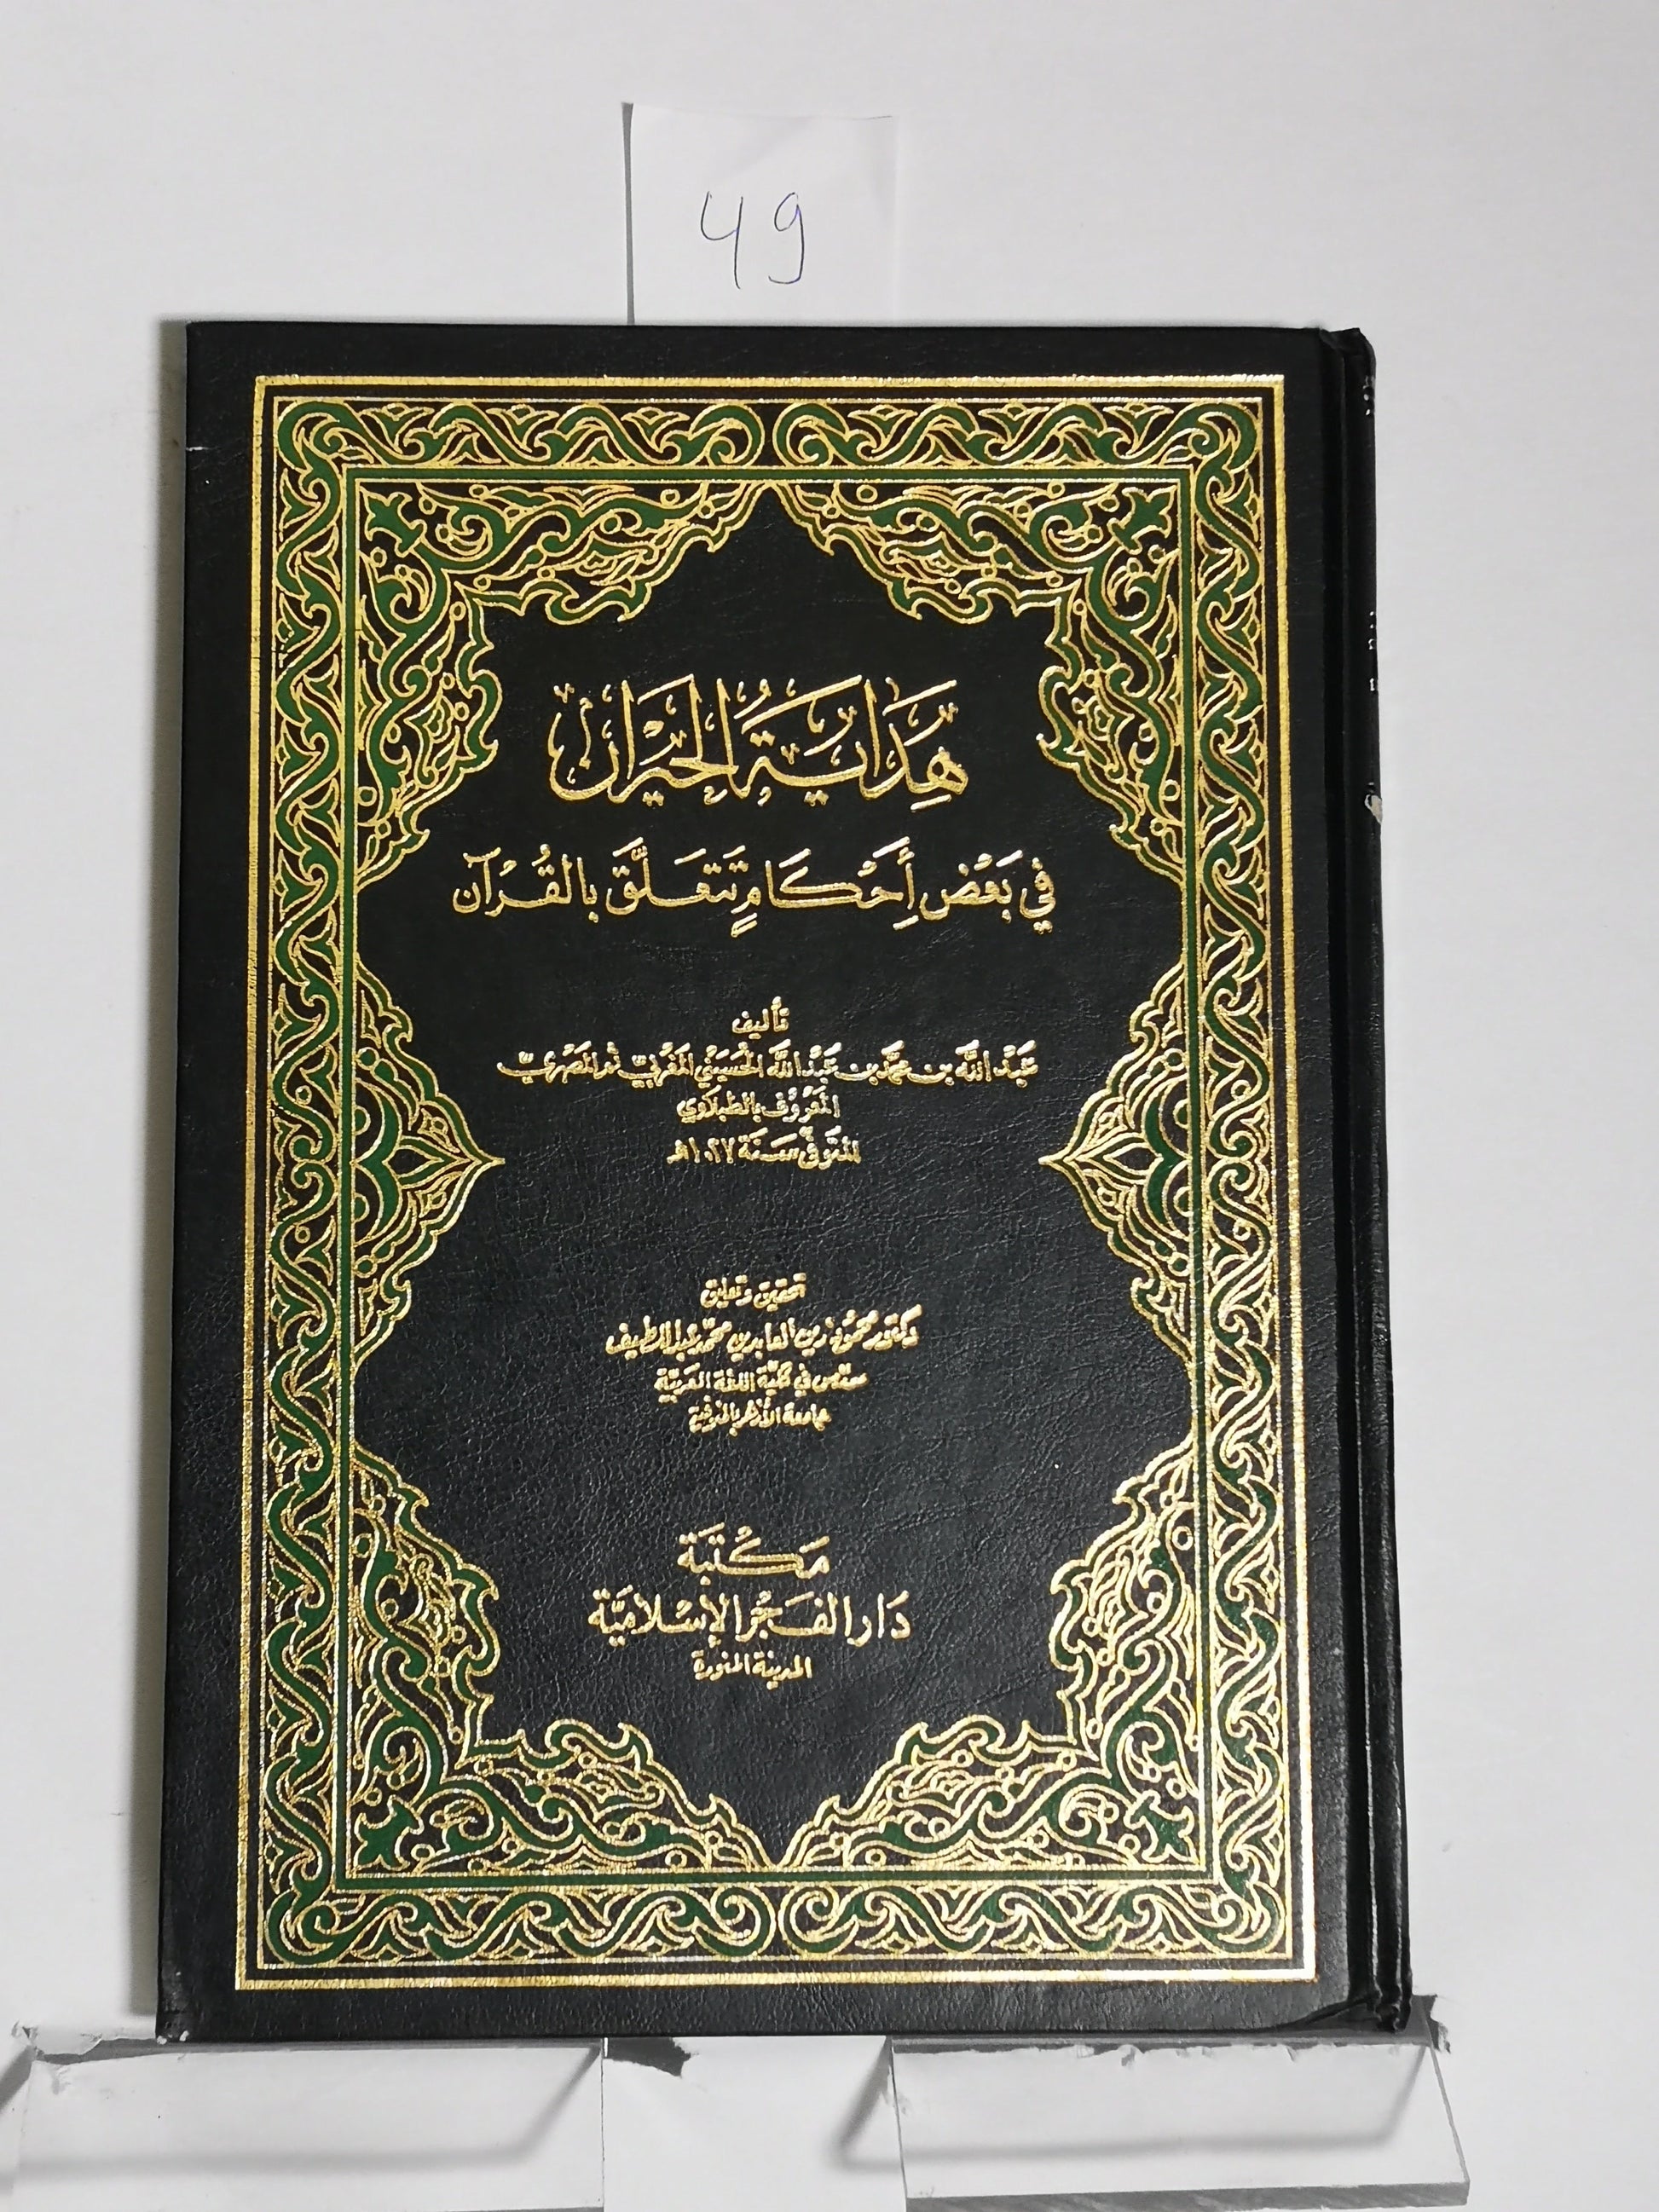 49
هِدَايَةُ الحَيْرَان
في بَعْضِ أَحْكَامٍ تَتَعَلَّقُ بِالقُرْآن
تأليف
عَبْد الله بن محمَّد بن عَبْد الله الحُسَيْنيّ المَغْرِبيّ ثم المَصْريّ
المَعْرُوف بالطبلاوي
المتوفّى سَنَة ١٠٢٧هـ
تحقيق وتعليق
دكتور محمود زين العابدين محمّد عبد اللطيف
مدرّس في كليّة اللغة العَربيّة
جامعة الأزهر بالمنوفية
مَكْتَبَة
دَار الفَجْر الإسْلاميَّة
المدينة المنورة